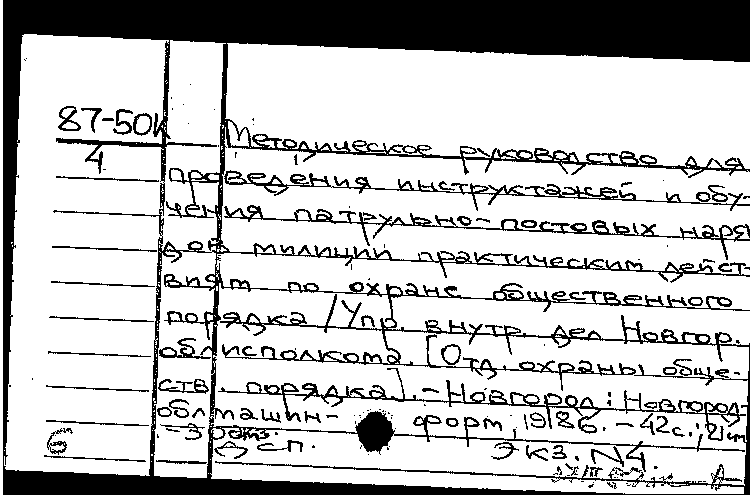 87-50к
4
Методическое руководство для
проведения инструктажей и обу-
чения патрульно-постовых наря-
дов милиции практическим дейст-
виям по охране общественного
порядка / Упр. внутр. дел Новгор.
облисполкома. [Отд. охраны обще-
ств. порядка]. - Новгород : Новгород-
облмашин- форм, 1986. - 42 с.; 21 см
- 30 экз.
Дсп. Экз. N4.
б